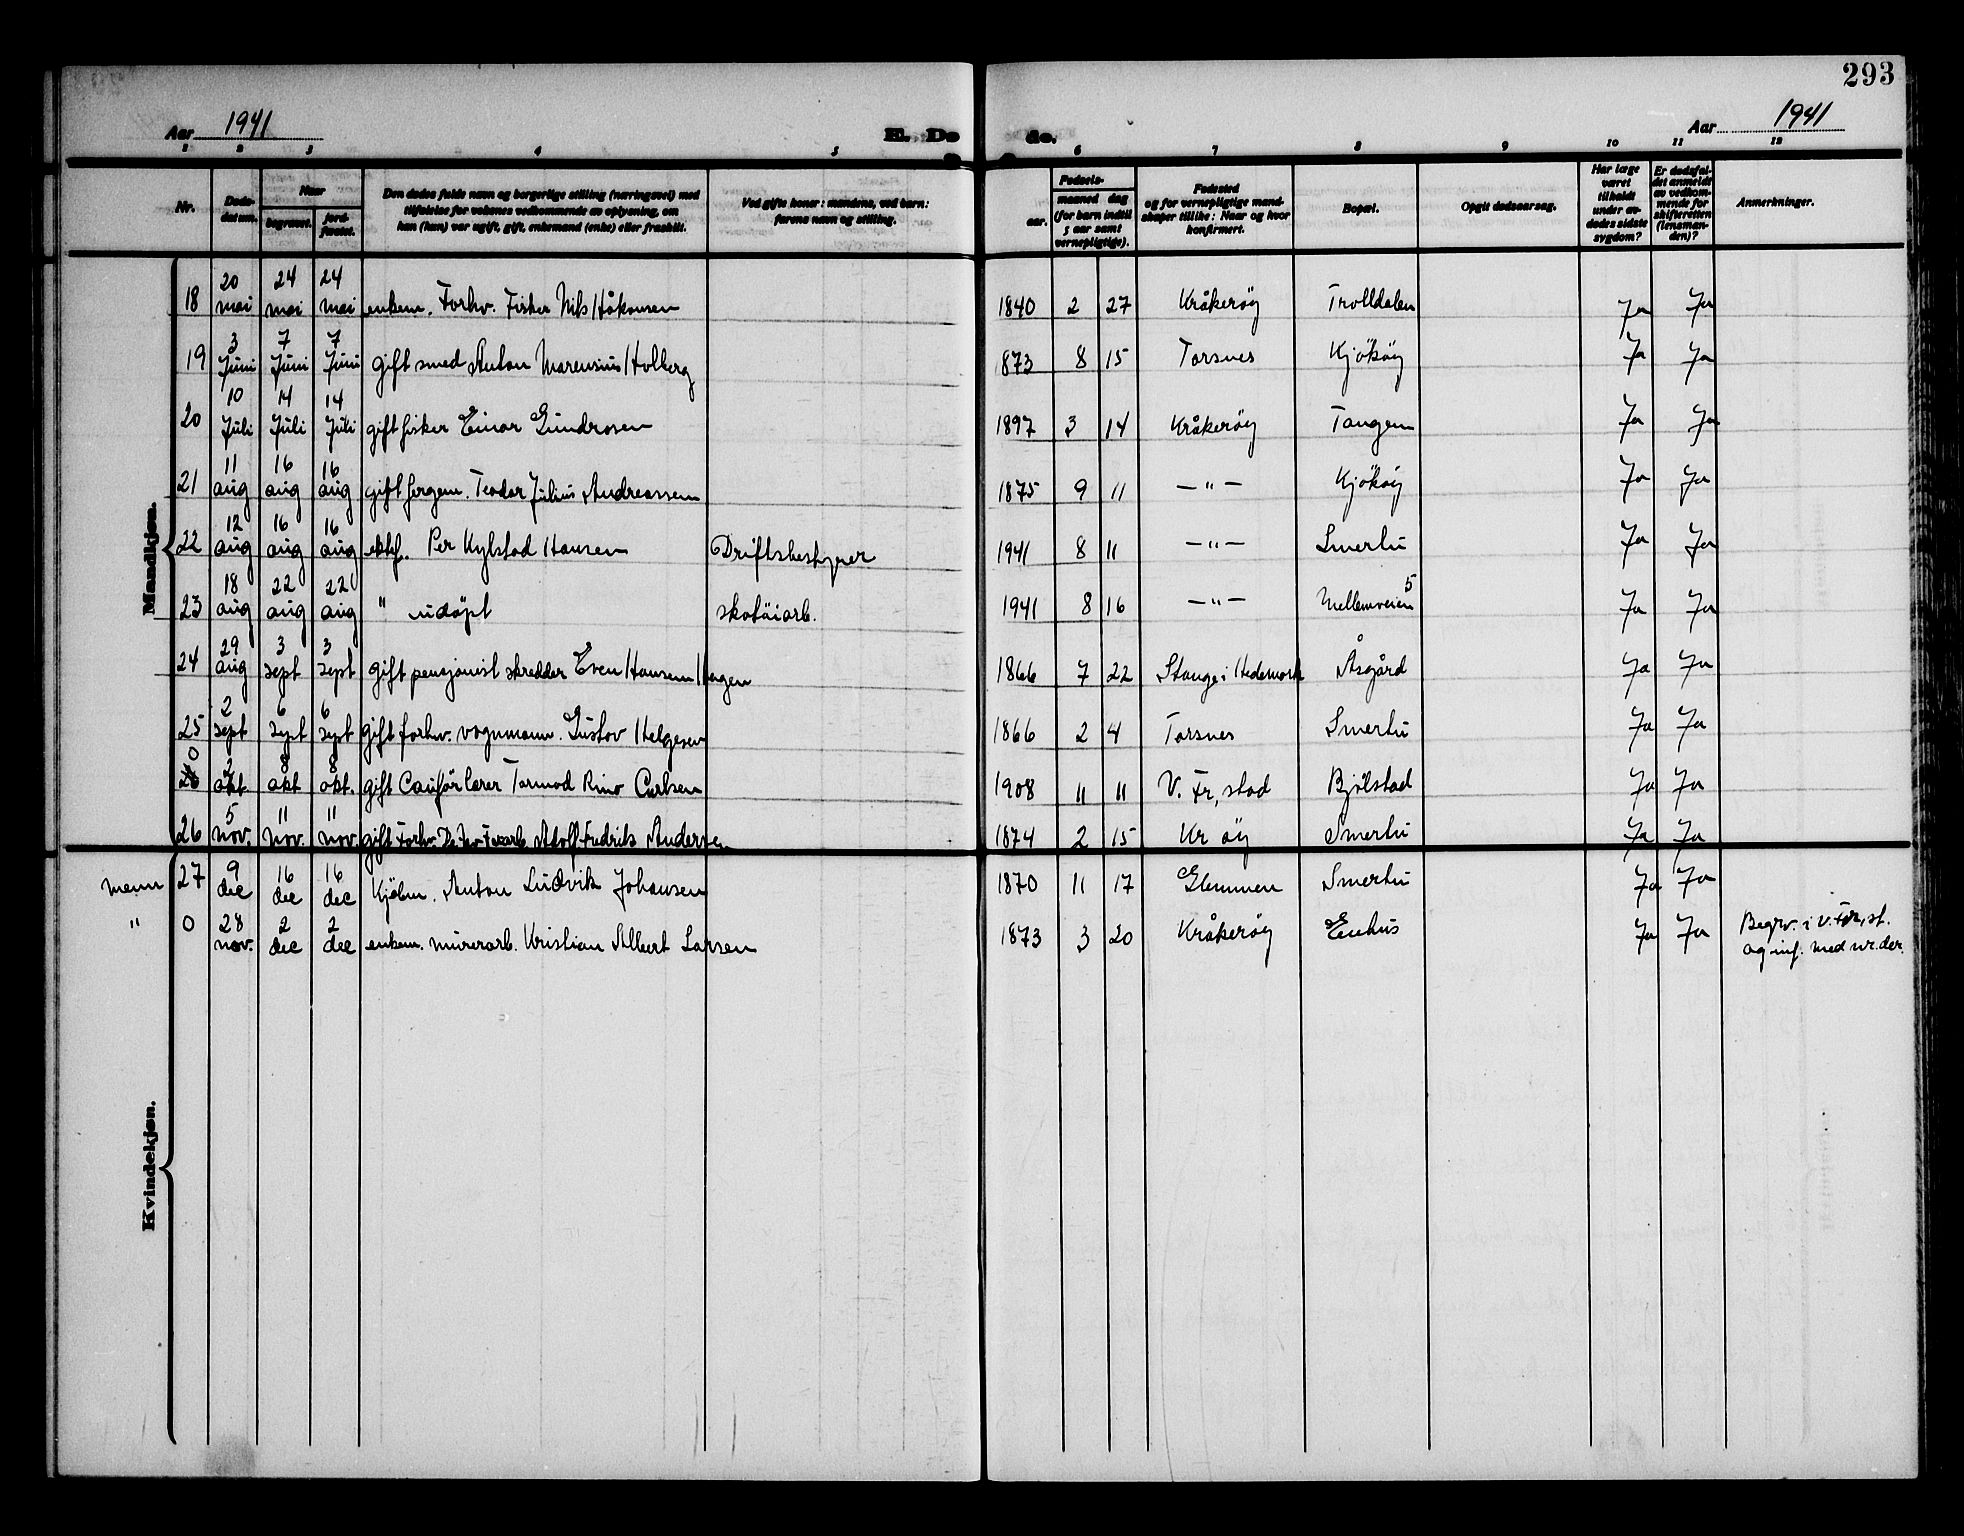 293
Aar 1941
E. Dø
de.
Aar 1941
1 2 3 4 5 6 7 8 9 10 11 12
Nr.
Døds-
datum.
Naar
begravet.
jord-
fæstet.
Den dødes fulde navn og borgerlige stilling (næringsvei) med
tilføielse for voksnes vedkommende av oplysning, om
han (hun) var ugift, gift, enkemand (enke) eller fraskilt.
Ved gifte koner: mandens, ved barn:
farens navn og stilling.
Fødsels-
aar.
maaned dag
(for barn indtil
5 aar samt
vernepligtige).
Fødested
og for vernepligtige mand-
skaper tillike: Naar og hvor
konfirmert.
Bopæl.
Opgit dødsaarsag.
Har læge
været
tilkaldt
under av-
dødes sidste
sygdom?
Er dødsfal-
det anmeldt
av vedkom-
mende for
skifteretten
(lensman-
den)?
Anmerkninger.
Mandkjøn.
18 20 mai 24 mai 24 mai enkem. Forhv. Fisker Nils Håkonsen 1840 2 27 Kråkerøy Trolldalen Ja Ja
19 3 Juni 7 Juni 7 Juni gift smed Anton Marensius Holberg 1873 8 15 Torsnes Kjøkøy Ja Ja
20 10 Juli 14 Juli 14 Juli gift fisker Einar Gundrosen 1897 3 14 Kråkerøy Tangen Ja Ja
21 11 aug 16 aug 16 aug gift fergem. Teodor Julius Andreassen 1875 9 11 —"— Kjøkøy Ja Ja
22 12 aug 16 aug 16 aug ektef. Per Kylstad Hansen Driftsbestyrer 1941 8 11 —"— Smertu Ja Ja
23 18 aug 22 aug 22 aug " udøpt skotøiarb. 1941 8 16 —"— Mellemveien 5 Ja Ja
24 29 aug 3 sept 3 sept gift pensjonist skredder Even Hansen Hagen 1866 7 22 Stange i Hedemark Åsgård Ja Ja
25 2 sept 6 sept 6 sept gift forhv. vognmann. Gustav Helgesen 1866 2 4 Torsnes Smertu Ja Ja
0 2 okt 8 okt 8 okt. gift Caufør lærer Tormod Rino Carlsen 1908 11 11 V. Fr,stad Bjølstad Ja Ja
26 5 nov. 11 nov. 11 nov. gift Forhv. Adolf Fredrik Andersen 1874 2 15 Kr øy Smertu Ja Ja
menn 27 9 dec 16 dec 16 dec Kjølm. Anton Ludvik Johansen 1870 11 17 Glemmen Smertu Ja Ja
" 0 28 nov. 2 dec 2 dec enkem. murerarb. Kristian Albert Larsen 1873 3 20 Kråkerøy Enhus Ja Ja Begrv. i V. Fr,st.
og inf. med nr. der.
Kvindekjøn.